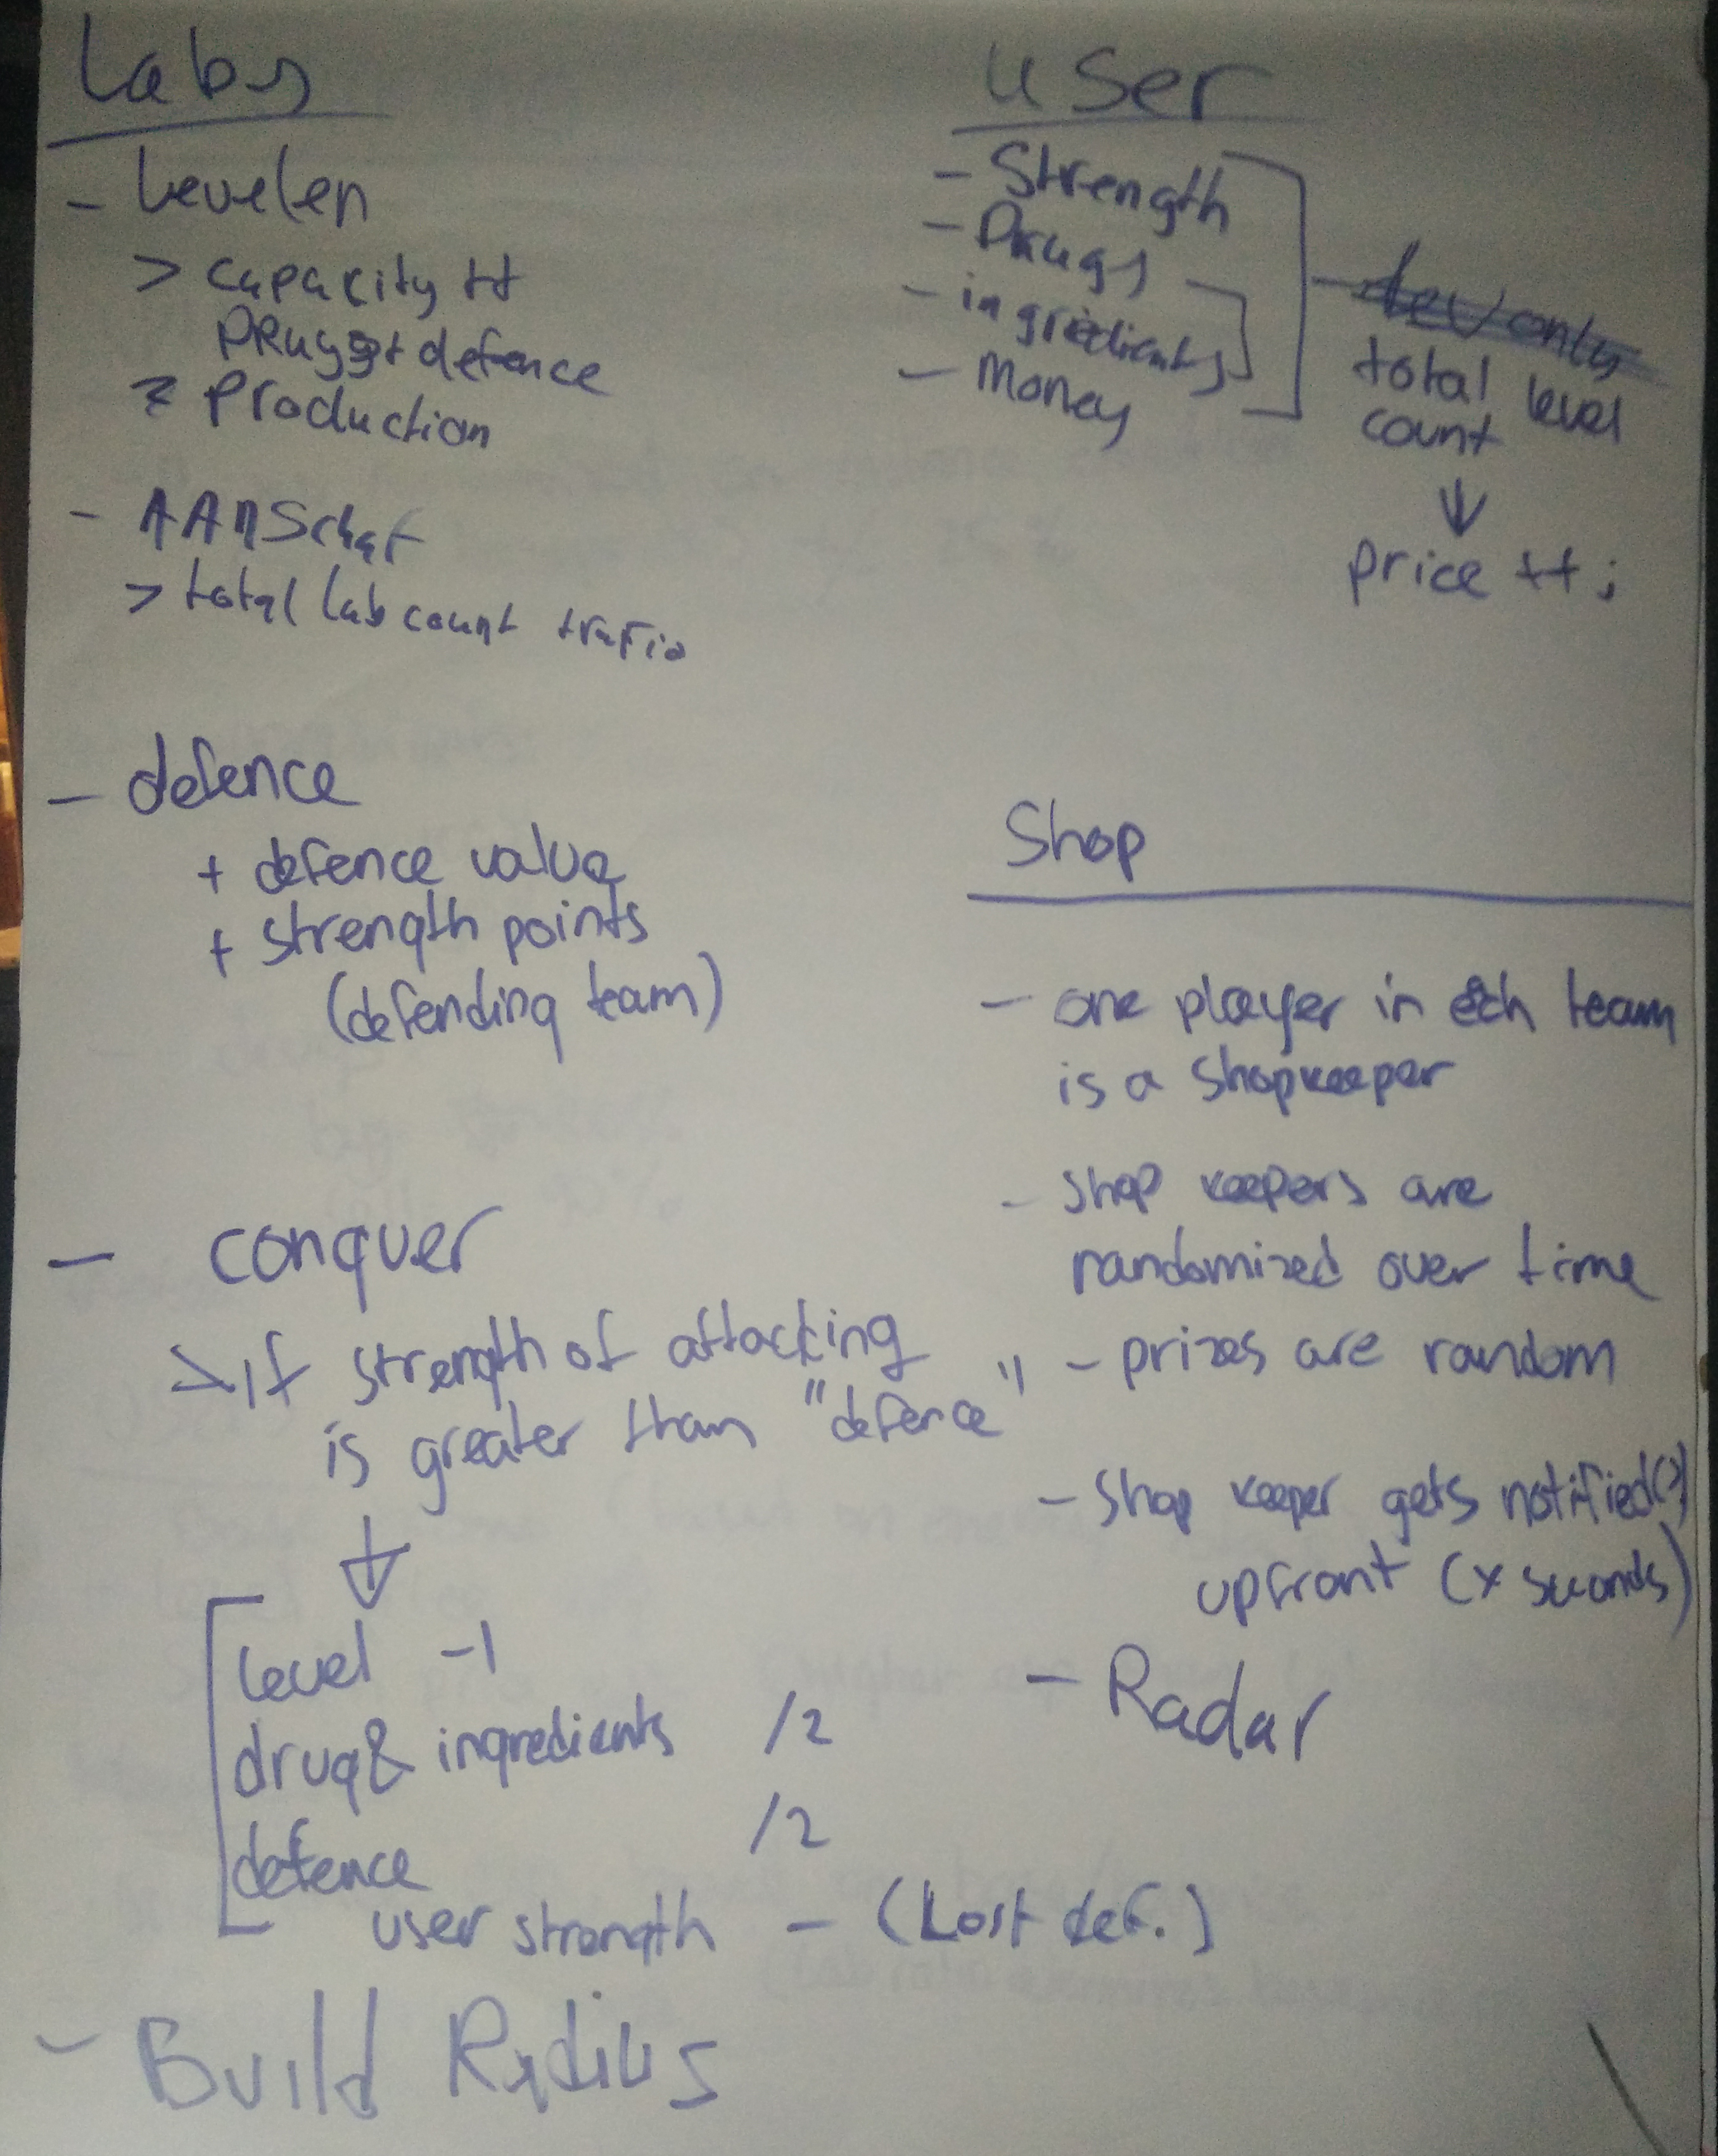 Labs
- Levelen
> capacity ++
DRugs + defence
> Production
- AANSchaf
> total lab count
- defence
+ defence value
+ strength points
(defending team)
- conquer
> if strength of attacking
is greater than "defence"
level -1
drug & ingredients /2
defence /2
user strength - (Lost def.)
- Build Radius
user
- Strength
- Drugs
- ingredients
- Money
dev only
total level
count
price ++;
Shop
- one player in each team
is a shopkeeper
- shop keepers are
randomized over time
- prizes are random
- shop keeper gets notified(?)
upfront (x seconds)
- Radar